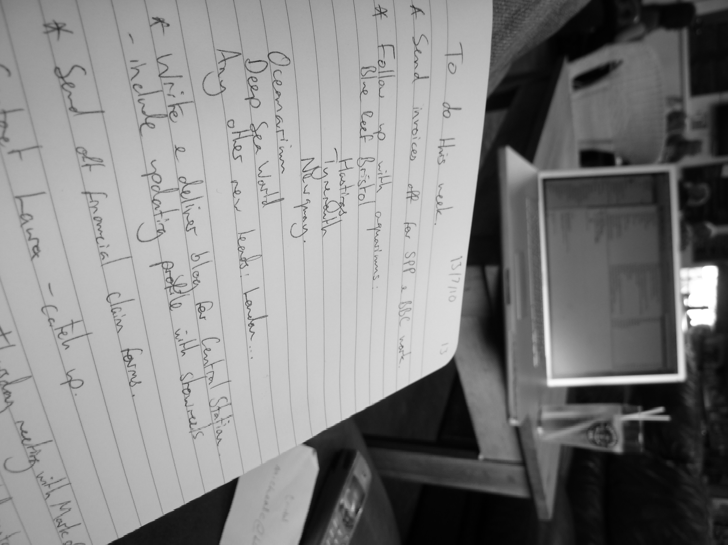 13/7/10
To do this week.
* Send invoices off for SPP & BBC work.
* Follow up with aquariums.
Blue Reef Bristol
- Hastings
Tynemouth
Newquay.
Oceanarium
Deep Sea World
Any other new leads. London...
* Write & deliver blog for Central Station
- include updating profile with showreels
* Send off financial claim forms.
Laura - catch up.
meeting with Mark